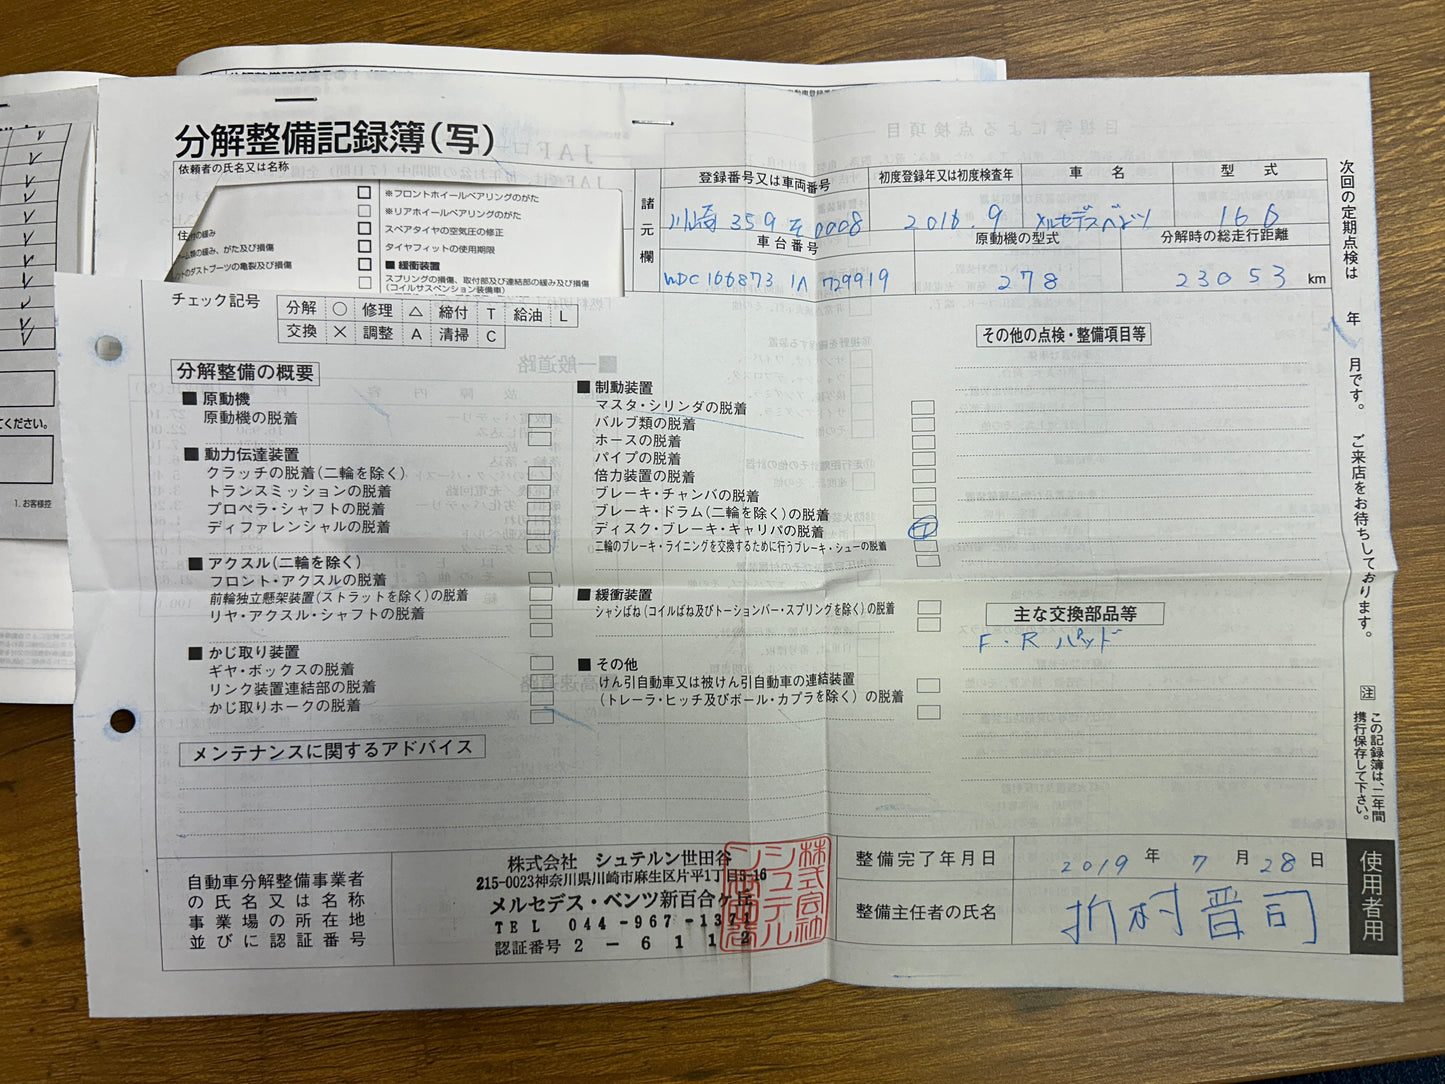 分解整備記録簿(写)
依頼者の氏名又は名称
※フロントホイールベアリングのがた
※リアホイールベアリングのがた
スペアタイヤの空気圧の修正
タイヤフィットの使用期限
■ 緩衝装置
スプリングの損傷、取付部及び連結部の緩み及び損傷
(コイルサスペンション装備車)
住
緩み、がた及び損傷
のダストブーツの亀裂及び損傷
諸元欄
登録番号又は車両番号
川崎 359 そ 0008
初度登録年又は初度検査年
2016.9
車 名
メルセデスベンツ
型 式
166
車台番号
WDC166873 1A 729919
原動機の型式
278
分解時の総走行距離
23053 km
チェック記号
分解 ○ 修理 △ 締付 T 給油 L
交換 × 調整 A 清掃 C
分解整備の概要
■ 原動機
原動機の脱着
■ 動力伝達装置
クラッチの脱着(二輪を除く)
トランスミッションの脱着
プロペラ・シャフトの脱着
ディファレンシャルの脱着
■ アクスル(二輪を除く)
フロント・アクスルの脱着
前輪独立懸架装置(ストラットを除く)の脱着
リヤ・アクスル・シャフトの脱着
■ かじ取り装置
ギヤ・ボックスの脱着
リンク装置連結部の脱着
かじ取りホークの脱着
■ 制動装置
マスタ・シリンダの脱着
バルブ類の脱着
ホースの脱着
パイプの脱着
倍力装置の脱着
ブレーキ・チャンバの脱着
ブレーキ・ドラム(二輪を除く)の脱着
ディスク・ブレーキ・キャリパの脱着
二輪のブレーキ・ライニングを交換するために行うブレーキ・シューの脱着
■ 緩衝装置
シャシばね(コイルばね及びトーションバー・スプリングを除く)の脱着
■ その他
けん引自動車又は被けん引自動車の連結装置
(トレーラ・ヒッチ及びボール・カプラを除く)の脱着
その他の点検・整備項目等
主な交換部品等
F・R パッド
メンテナンスに関するアドバイス
自動車分解整備事業者
の氏名又は名称
事業場の所在地
並びに認証番号
株式会社 シュテルン世田谷
215-0023神奈川県川崎市麻生区片平1丁目5-16
メルセデス・ベンツ新百合ヶ丘
TEL 044-967-1371
認証番号 2-6112
株式会社シュテルン世田谷
整備完了年月日
2019 年 7 月 28 日
整備主任者の氏名
折村晋司
次回の定期点検は 年 月です。 ご来店をお待ちしております。
注 この記録簿は、二年間
携行保存して下さい。
使用者用
てください。
1. お客様控